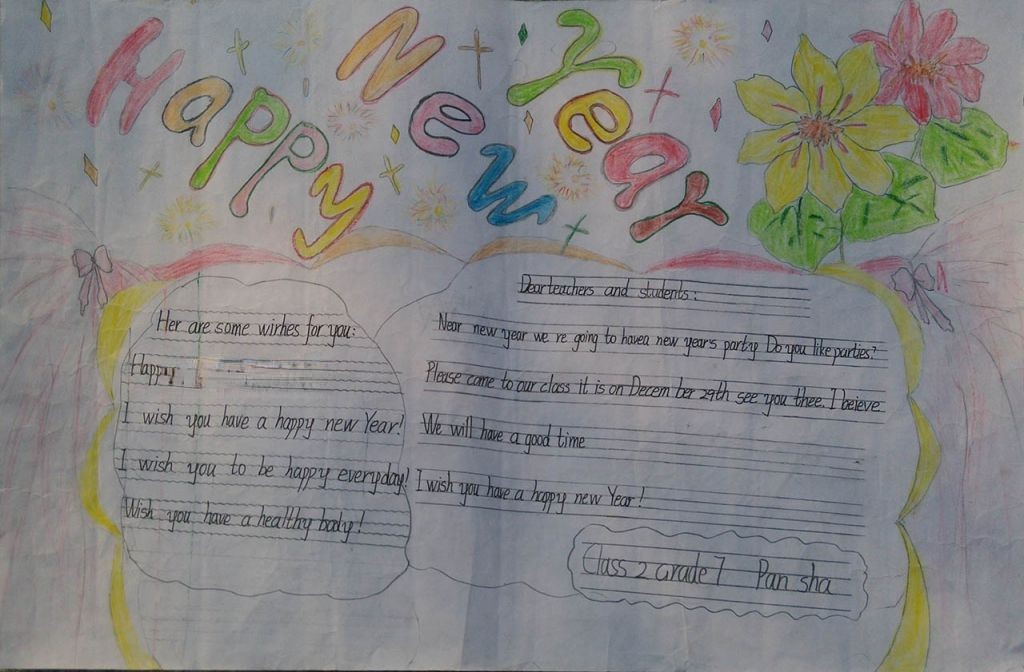 Happy New Year
Her are some wirhes for you:
Happy
I wish you have a happy new Year!
I wish you to be happy everyday!
Wish you have a healthy body!
Dear teachers and students:
Near new year we re going to havea new year's party Do you like parties?
Please come to our class it is on Decem ber 29th see you thee. I beieve
We will have a good time
I wish you have a happy new Year!
Class 2 Grade 7 Pan sha